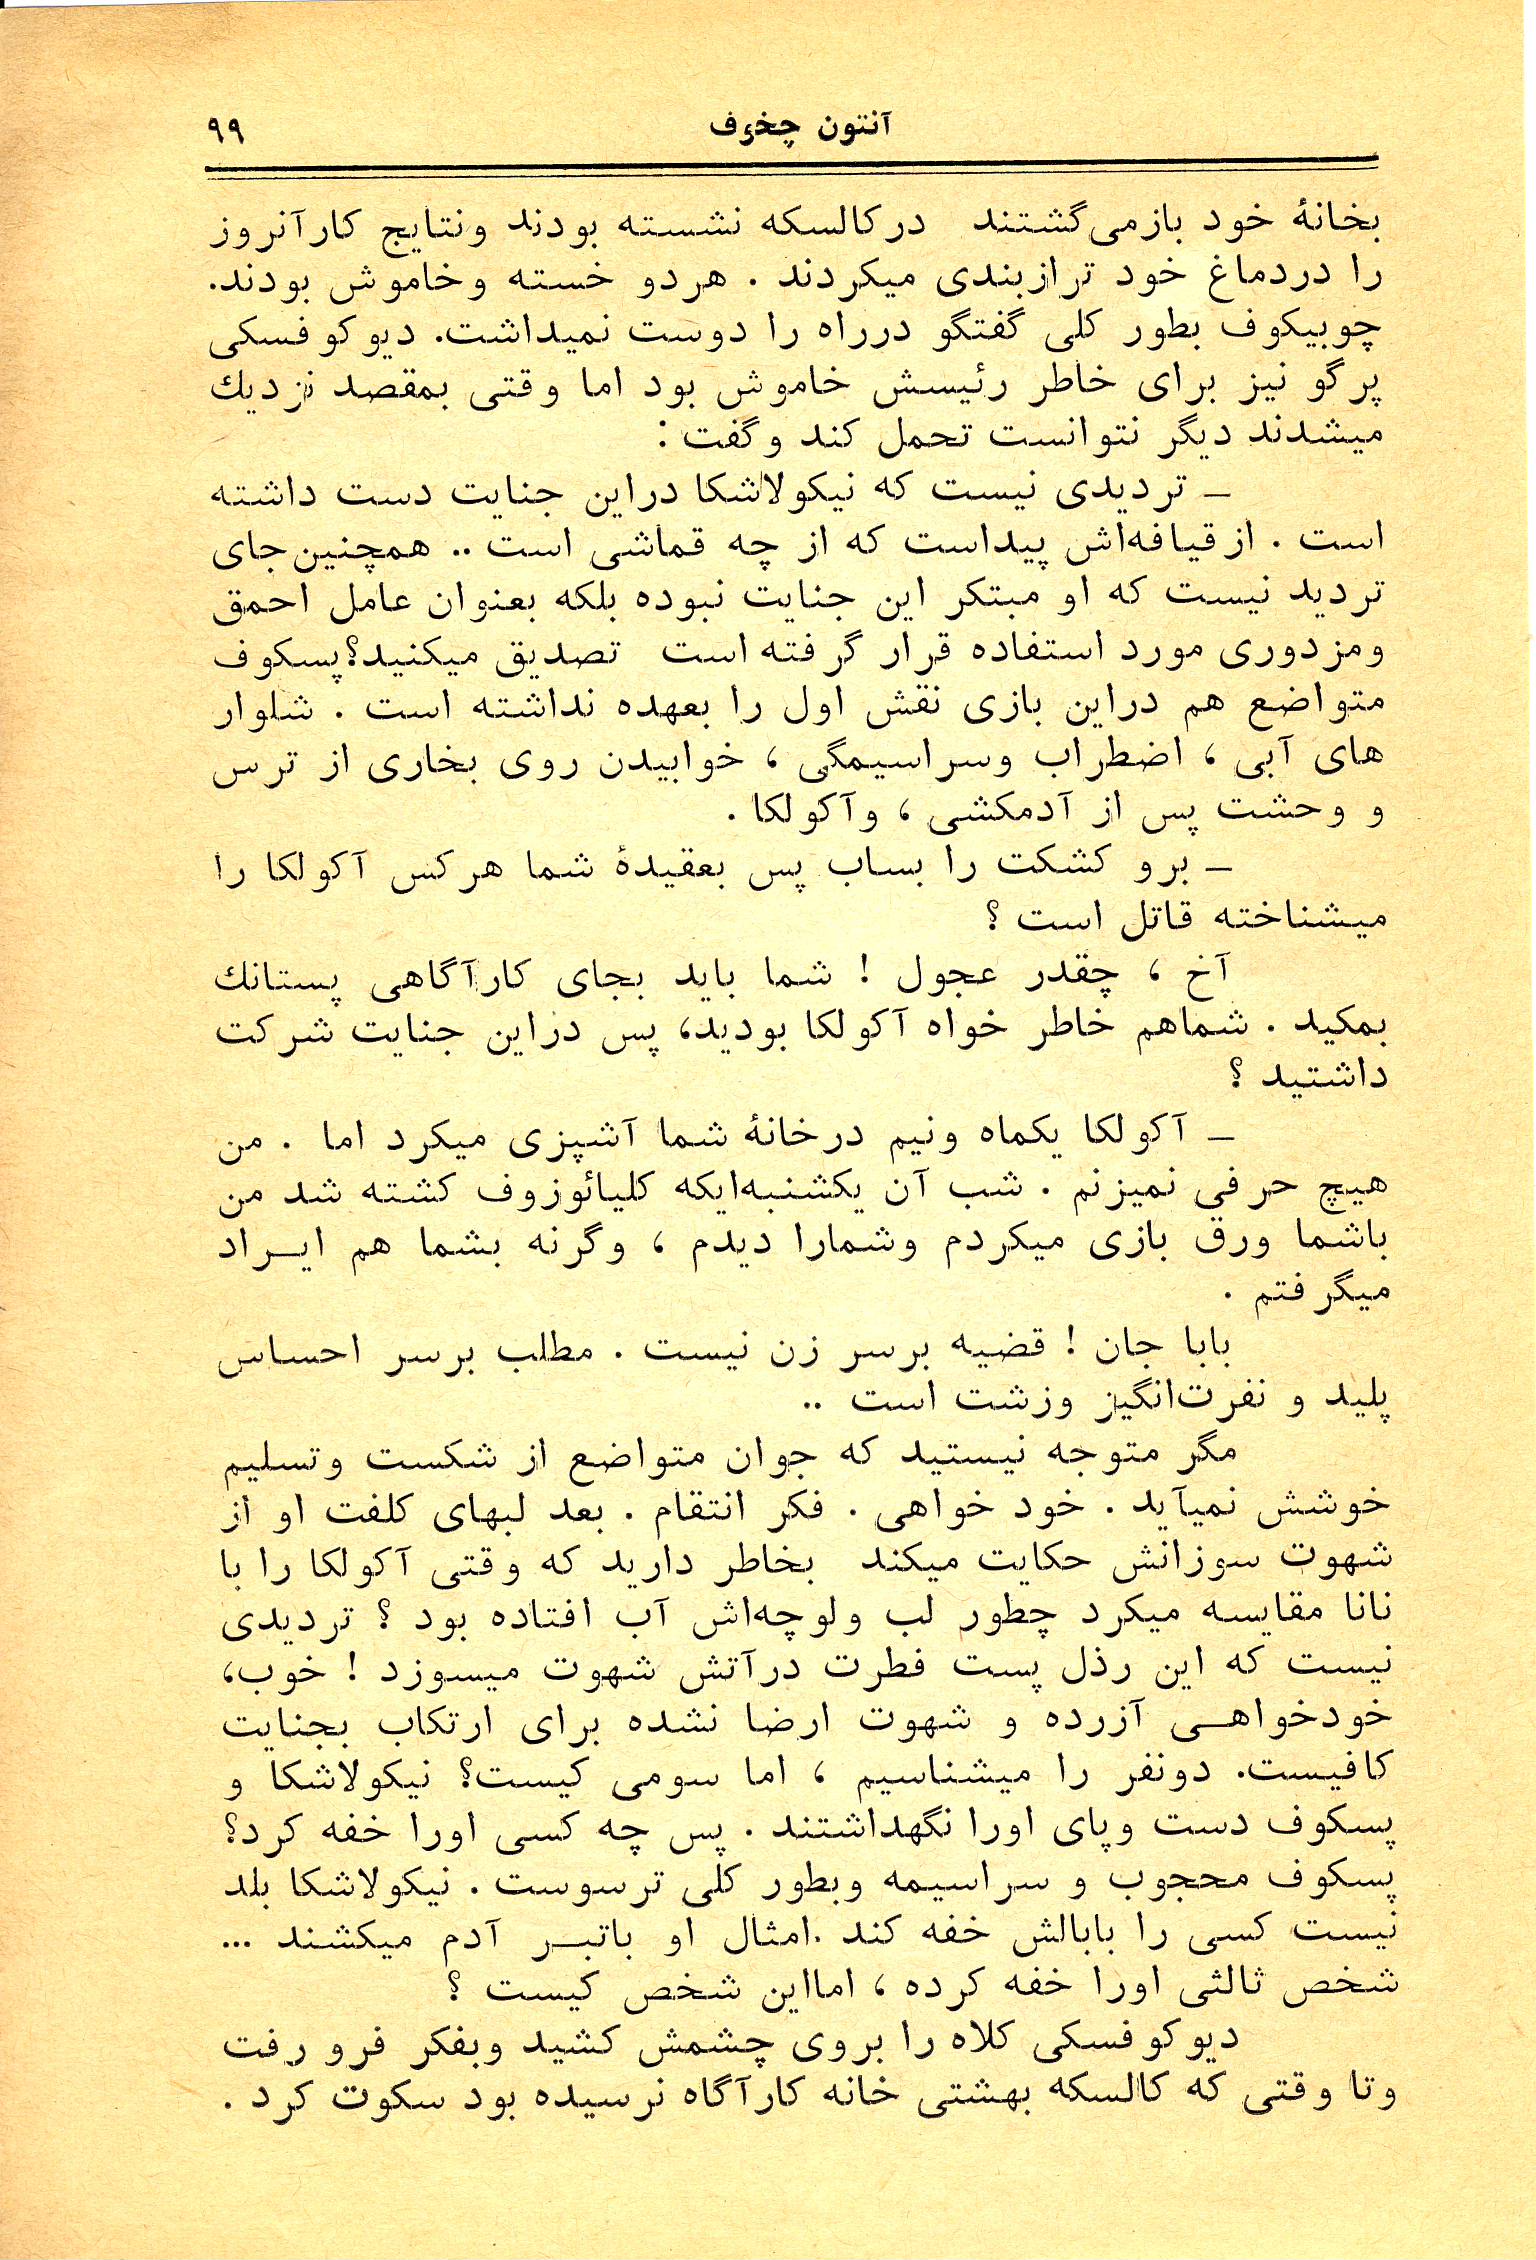 آنتون چخوف ۹۹
بخانهٔ خود بازمی‌گشتند درکالسکه نشسته بودند ونتایج کارآنروز
را دردماغ خود ترازبندی میکردند . هردو خسته وخاموش بودند.
چوبیکوف بطور کلی گفتگو درراه را دوست نمیداشت. دیوکوفسکی
پرگو نیز برای خاطر رئیسش خاموش بود اما وقتی بمقصد نزدیك
میشدند دیگر نتوانست تحمل کند وگفت :
ـ تردیدی نیست که نیکولاشکا دراین جنایت دست داشته
است . ازقیافه‌اش پیداست که از چه قماشی است .. همچنین‌جای
تردید نیست که او مبتکر این جنایت نبوده بلکه بعنوان عامل احمق
ومزدوری مورد استفاده قرار گرفته است تصدیق میکنید؟پسکوف
متواضع هم دراین بازی نقش اول را بعهده نداشته است . شلوار
های آبی ، اضطراب وسراسیمگی ، خوابیدن روی بخاری از ترس
و وحشت پس از آدمکشی ، وآکولکا .
ـ برو کشکت را بساب پس بعقیدهٔ شما هرکس آکولکا را
میشناخته قاتل است ؟
آخ ، چقدر عجول ! شما باید بجای کارآگاهی پستانك
بمکید . شماهم خاطر خواه آکولکا بودید، پس دراین جنایت شرکت
داشتید ؟
ـ آکولکا یکماه ونیم درخانهٔ شما آشپزی میکرد اما . من
هیچ حرفی نمیزنم . شب آن یکشنبه‌ایکه کلیائوزوف کشته شد من
باشما ورق بازی میکردم وشمارا دیدم ، وگرنه بشما هم ایـراد
میگرفتم .
بابا جان ! قضیه برسر زن نیست . مطلب برسر احساس
پلید و نفرت‌انگیز وزشت است ..
مگر متوجه نیستید که جوان متواضع از شکست وتسلیم
خوشش نمیآید . خود خواهی . فکر انتقام . بعد لبهای کلفت او از
شهوت سوزانش حکایت میکند بخاطر دارید که وقتی آکولکا را با
نانا مقایسه میکرد چطور لب ولوچه‌اش آب افتاده بود ؟ تردیدی
نیست که این رذل پست فطرت درآتش شهوت میسوزد ! خوب،
خودخواهـی آزرده و شهوت ارضا نشده برای ارتکاب بجنایت
کافیست. دونفر را میشناسیم ، اما سومی کیست؟ نیکولاشکا و
پسکوف دست وپای اورا نگهداشتند . پس چه کسی اورا خفه کرد؟
پسکوف محجوب و سراسیمه وبطور کلی ترسوست . نیکولاشکا بلد
نیست کسی را بابالش خفه کند .امثال او باتبـر آدم میکشند ...
شخص ثالثی اورا خفه کرده ، امااین شخص کیست ؟
دیوکوفسکی کلاه را بروی چشمش کشید وبفکر فرو رفت
وتا وقتی که کالسکه بهشتی خانه کارآگاه نرسیده بود سکوت کرد .